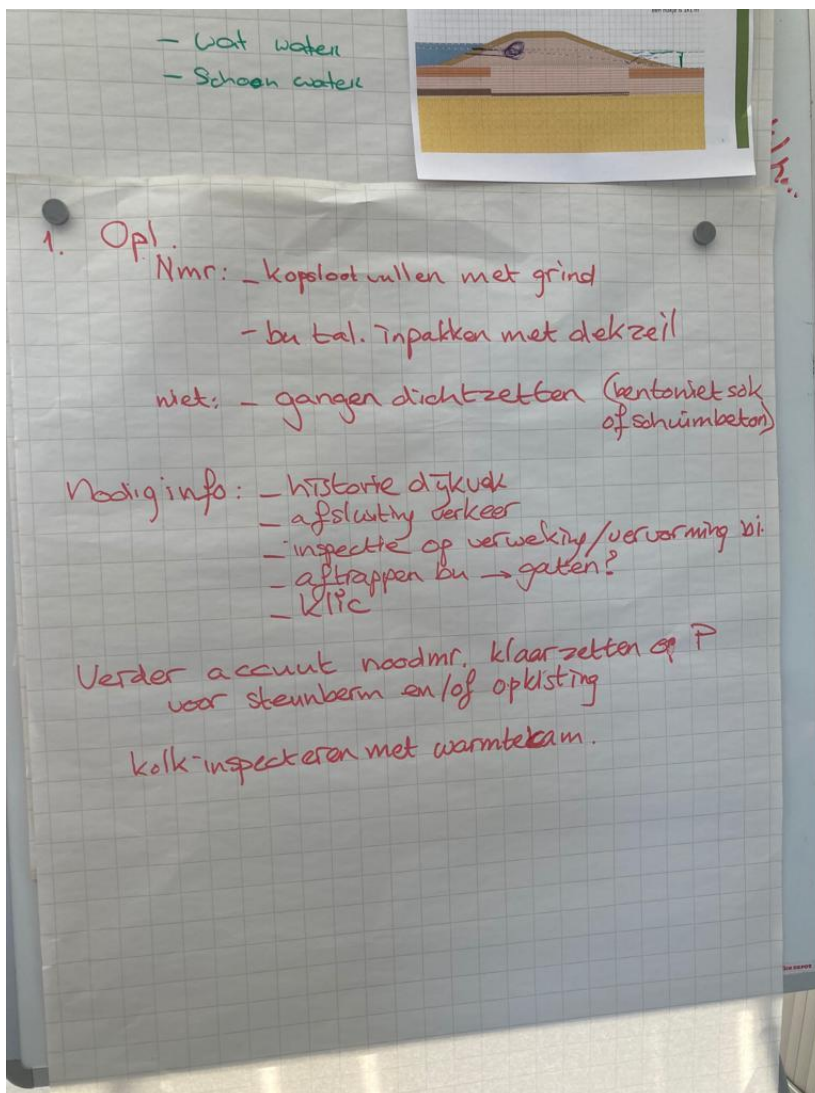 - wat water
- Schoon water
1. Opl.
Nmr: - kopsloot vullen met grind
- bu tal. inpakken met dekzeil
niet: - gangen dichtzetten (bentoniet sok
of schuimbeton)
Nodig info: - historie dijkvak
- afsluiting verkeer
- inspectie op verweking/vervorming bi.
- aftrappen bu → gaten?
- Klic
Verder accuut noodmr. klaarzetten op P
voor steunberm en/of opkisting
kolk-inspecteren met warmtekam.